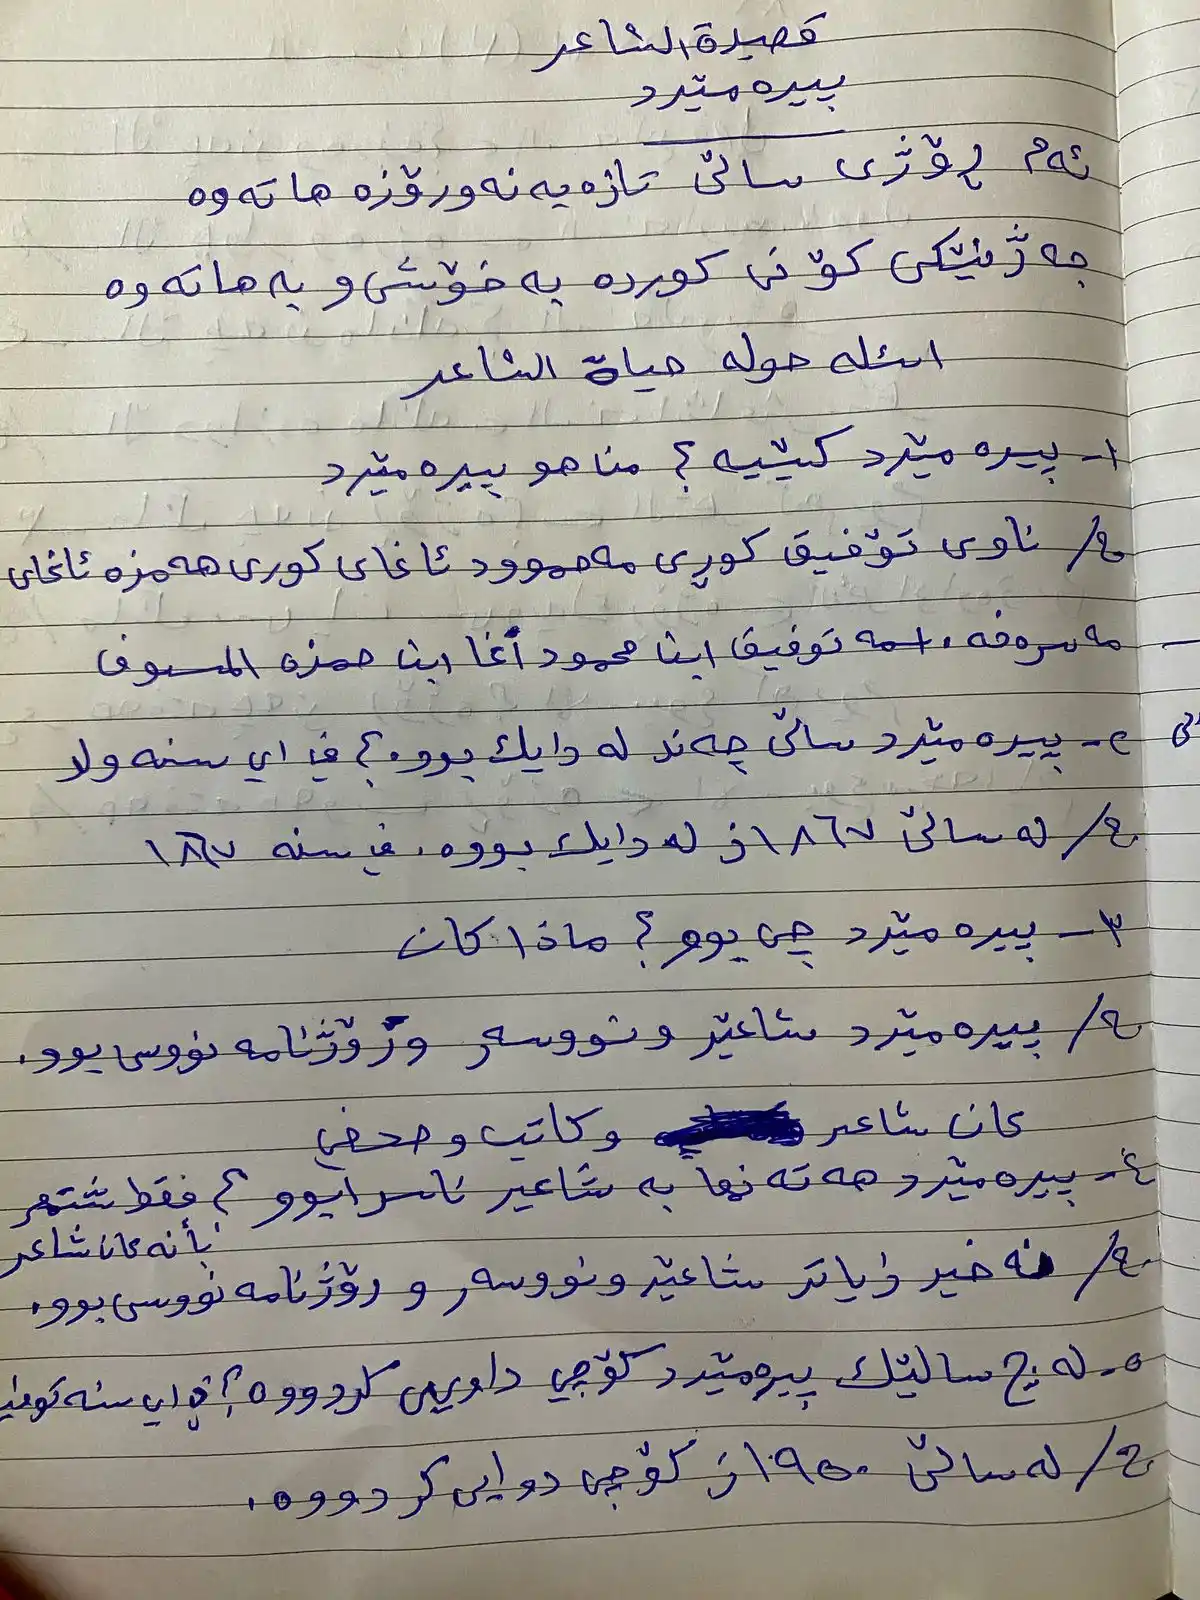 قصيدة الشاعر
پیرە مێرد
ئەم ڕۆژی ساڵی تازەیە نەورۆزە هاتەوە
جەژنێکی کۆنی کوردە بە خۆشی و بە هاتەوە
اسئله حوله حياة الشاعر
١- پیرە مێرد کێیە؟ منا هو پیرە مێرد
ج/ ناوی تۆفیق کوڕی مەحموود ئاغای کوری هەمزە ئاغای
مەسرەفە، اسمه توفيق ابنا محمود أغا ابنا حمزه المسوف
٢- پیرە مێرد ساڵی چەند لە دایك بوو؟ في اي سنه ولد
ج/ لە ساڵی ١٨٦٧ ز لە دایك بووە، في سنه ١٨٦٧
٣- پیرە مێرد چی بوو؟ ماذا كان
ج/ پیرە مێرد شاعێر و نووسەر و ڕۆژنامە نووسی بوو.
كان شاعر وكاتب و صحفي
٤- پیرە مێرد هەتەنها بە شاعیر ناسرابوو؟ فقط شتهر
بأنه كان شاعر
ج/ نەخێر زیاتر شاعێر و نووسەر و رۆژنامە نووسی بوو.
٥- لە چ سالێك پیرەمێرد کۆچی داویی کردووە؟ في اي سنه توفي
ج/ لە ساڵی ١٩٥٠ ز کۆچی دوایی کردووە.